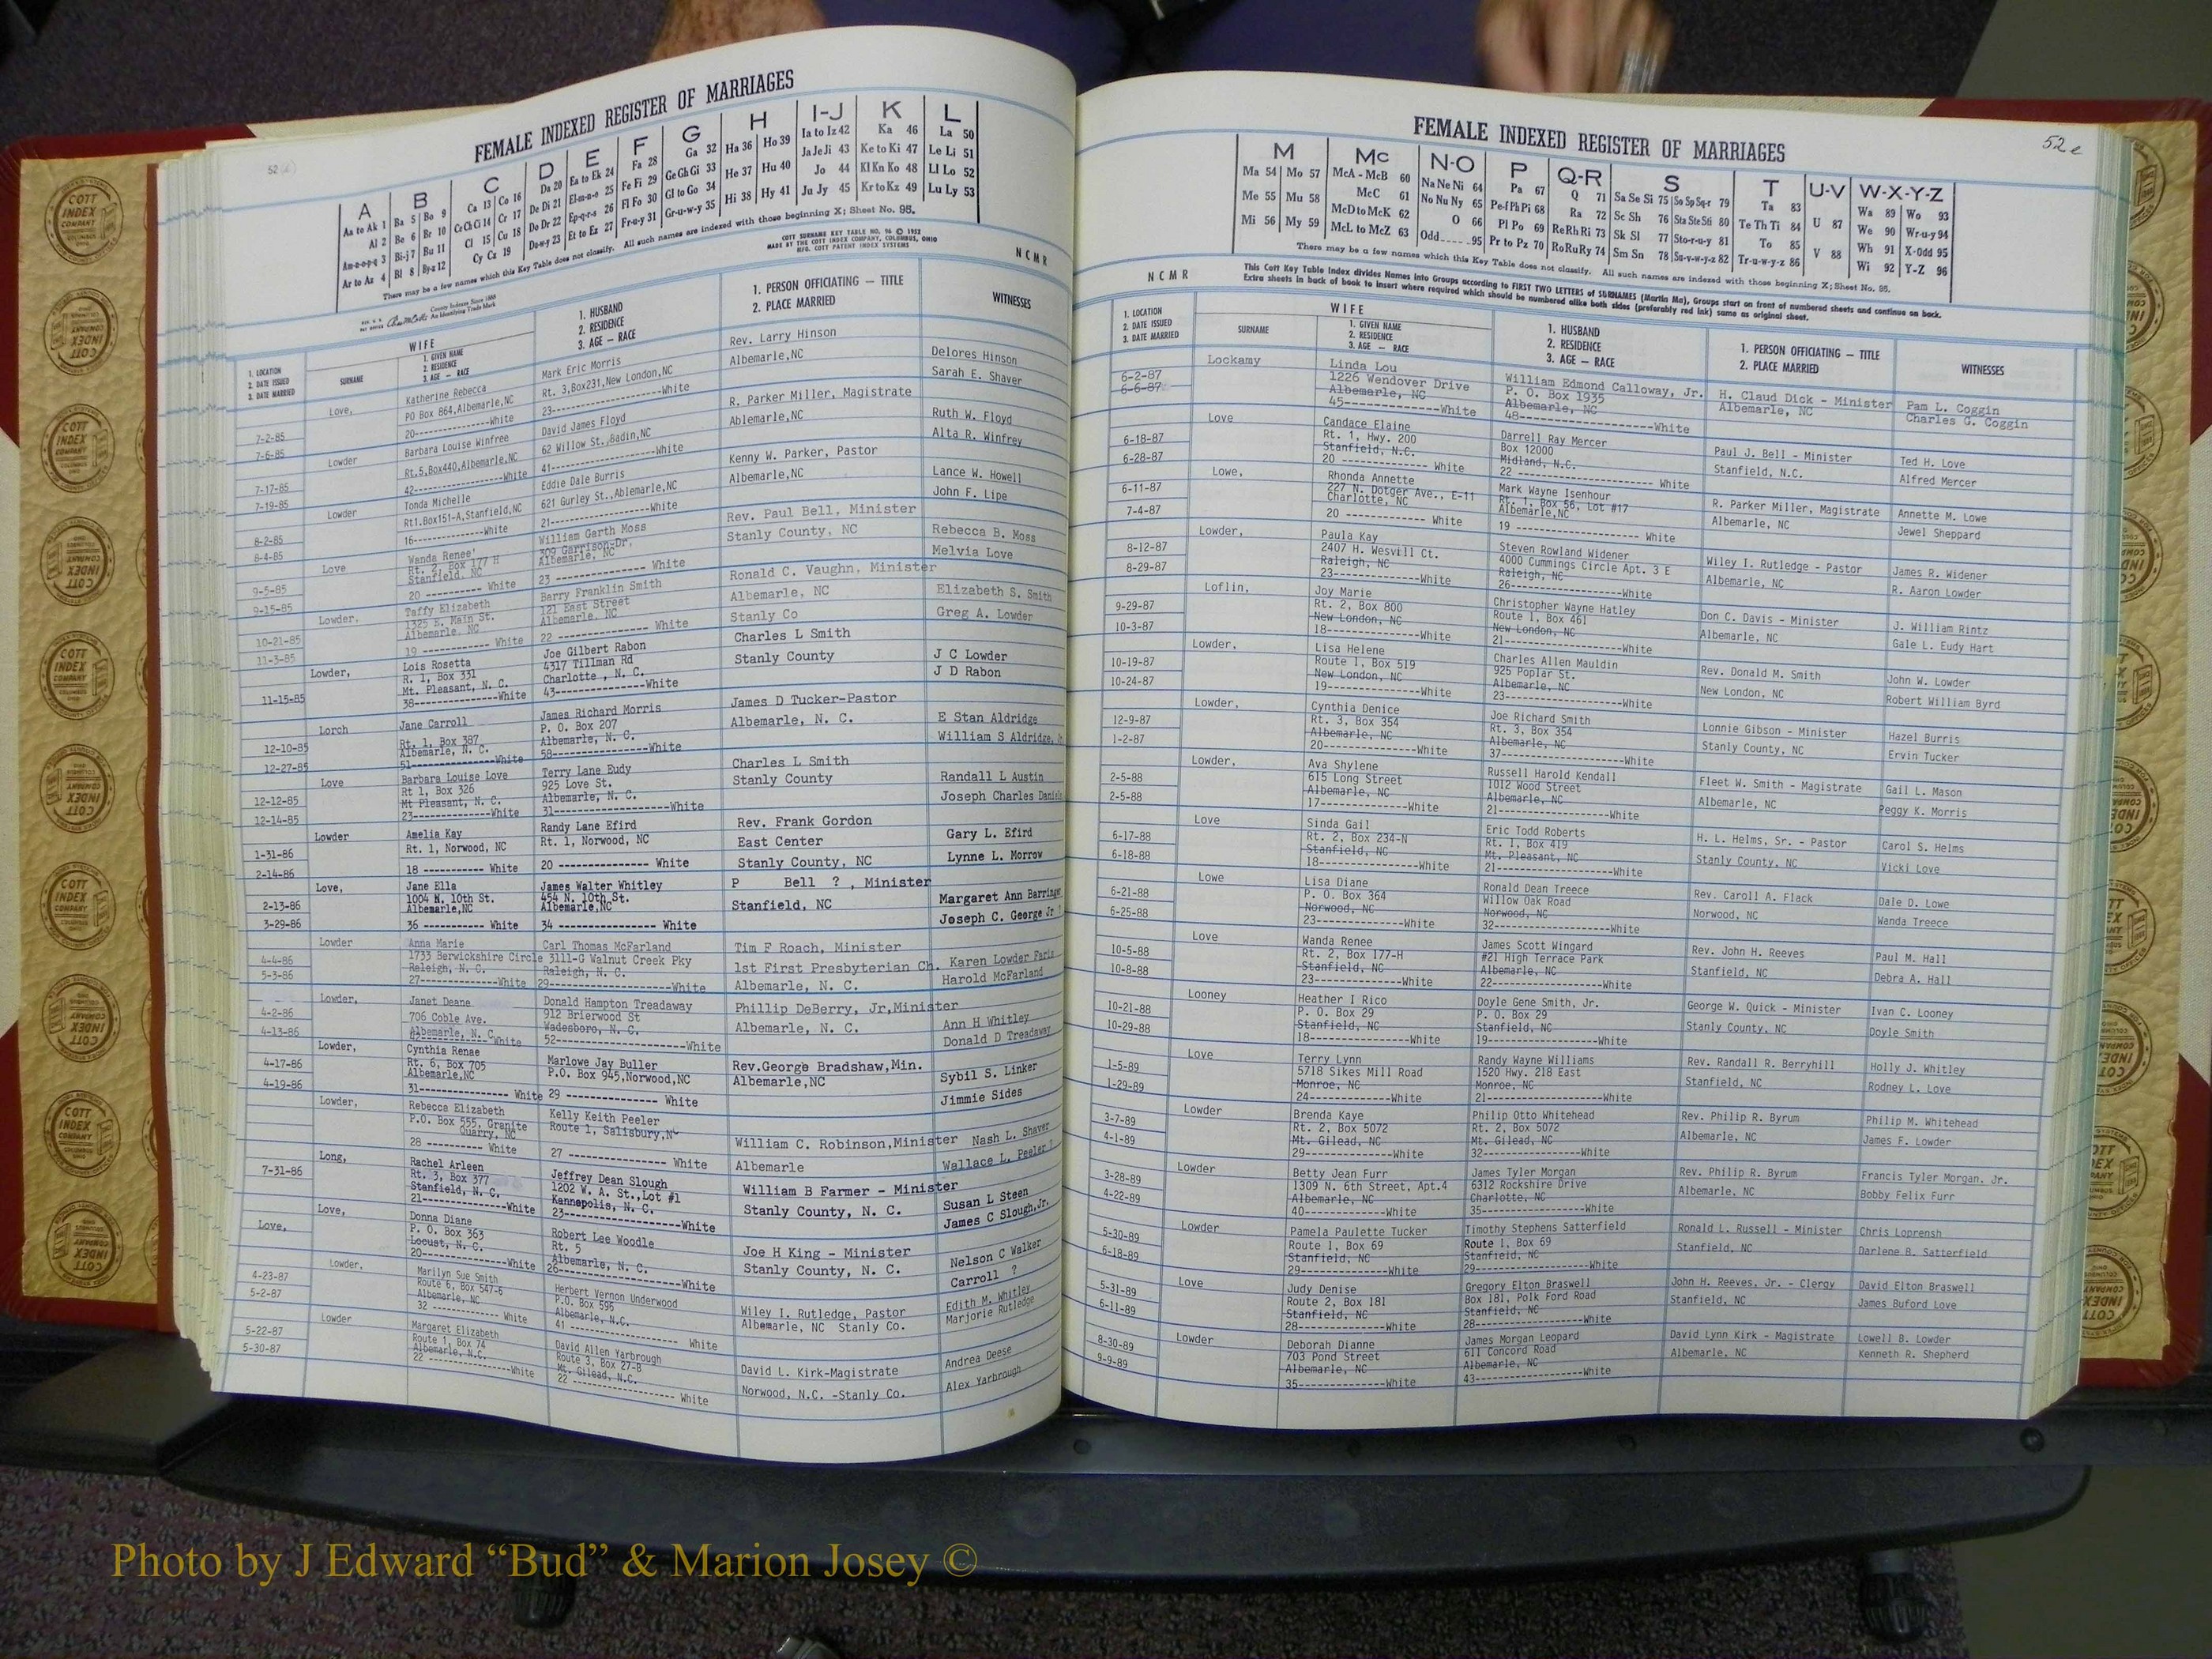 52(d)
FEMALE INDEXED REGISTER OF MARRIAGES
A B C D E F G H I-J K L
Aa to Ak 1 Ba 5 Bo 9 Ca 13 Co 16 Da 20 Ea to Ek 24 Fa 28 Ga 32 Ha 36 Ho 39 Ia to Iz 42 Ka 46 La 50
Al 2 Be 6 Br 10 Ce Ch Ci 14 Cr 17 De Di 21 El-m-n-o 25 Fe Fi 29 Ge Gh Gi 33 He 37 Hu 40 Ja Je Ji 43 Ke to Ki 47 Le Li 51
Am-n-o-p-q 3 Bi-j 7 Bu 11 Cl 15 Cu 18 Do Dr 22 Ep-q-r-s 26 Fl Fo 30 Gl to Go 34 Hi 38 Hy 41 Jo 44 Kl Kn Ko 48 Ll Lo 52
Ar to Az 4 Bl 8 By-z 12 Cy Cz 19 Du-w-y 23 Et to Ez 27 Fr-u-y 31 Gr-u-w-y 35 Ju Jy 45 Kr to Kz 49 Lu Ly 53
There may be a few names which this Key Table does not classify. All such names are indexed with those beginning X; Sheet No. 95.
COTT SURNAME KEY TABLE NO. 96 © 1952
MADE BY THE COTT INDEX COMPANY, COLUMBUS, OHIO
MFG. COTT PATENT INDEX SYSTEMS
County Indexes Since 1888
An Identifying Trade Mark
NCMR
1. LOCATION
2. DATE ISSUED
3. DATE MARRIED
WIFE
SURNAME
1. GIVEN NAME
2. RESIDENCE
3. AGE — RACE
1. HUSBAND
2. RESIDENCE
3. AGE — RACE
1. PERSON OFFICIATING — TITLE
2. PLACE MARRIED
WITNESSES
Love, Katherine Rebecca Mark Eric Morris Rev. Larry Hinson Delores Hinson
7-2-85 PO Box 864,Albemarle,NC Rt. 3,Box231,New London,NC Albemarle,NC Sarah E. Shaver
7-6-85 20----------------White 23----------------White
Lowder Barbara Louise Winfree David James Floyd R. Parker Miller, Magistrate Ruth W. Floyd
7-17-85 Rt.5,Box440,Albemarle,NC 62 Willow St.,Badin,NC Ablemarle,NC Alta R. Winfrey
7-19-85 42----------------White 41----------------White
Lowder Tonda Michelle Eddie Dale Burris Kenny W. Parker, Pastor Lance W. Howell
8-2-85 Rt1.Box151-A,Stanfield,NC 621 Gurley St.,Ablemarle,NC Albemarle,NC John F. Lipe
8-4-85 16----------White 21----------------White
Love Wanda Renee' William Garth Moss Rev. Paul Bell, Minister Rebecca B. Moss
9-5-85 Rt. 2, Box 177 H 309 Garrison-Dr. Stanly County, NC Melvia Love
9-15-85 Stanfield, NC Albemarle, NC
20 --------- White 23 ------------- White
Lowder, Taffy Elizabeth Barry Franklin Smith Ronald C. Vaughn, Minister Elizabeth S. Smith
10-21-85 1325 E. Main St. 121 East Street Albemarle, NC Greg A. Lowder
11-3-85 Albemarle, NC Albemarle, NC Stanly Co
19 ----------- White 22 ------------- White
Lowder, Lois Rosetta Joe Gilbert Rabon Charles L Smith J C Lowder
11-15-85 R. 1, Box 331 4317 Tillman Rd Stanly County J D Rabon
Mt. Pleasant, N. C. Charlotte , N. C.
38----------------White 43----------------White
Lorch Jane Carroll James Richard Morris James D Tucker-Pastor E Stan Aldridge
12-10-85 Rt. 1, Box 387 P. O. Box 207 Albemarle, N. C. William S Aldridge,
12-27-85 Albemarle, N. C. Albemarle, N. C.
51----------------White 58----------------White
Love Barbara Louise Love Terry Lane Eudy Charles L Smith Randall L Austin
12-12-85 Rt 1, Box 326 925 Love St. Stanly County Joseph Charles Daniels
12-14-85 Mt Pleasant, N. C. Albemarle, N. C.
23----------------White 31----------------White
Lowder Amelia Kay Randy Lane Efird Rev. Frank Gordon Gary L. Efird
1-31-86 Rt. 1, Norwood, NC Rt. 1, Norwood, NC East Center Lynne L. Morrow
2-14-86 18 ---------- White 20 --------------- White Stanly County, NC
Love, Jane Ella James Walter Whitley P Bell ? , Minister Margaret Ann Barringer
2-13-86 1004 N. 10th St. 454 N. 10th St. Stanfield, NC Joseph C. George Jr.
3-29-86 Albemarle,NC Albemarle,NC
36 ---------- White 34 ---------------- White
Lowder Anna Marie Carl Thomas McFarland Tim F Roach, Minister Karen Lowder Faris
4-4-86 1733 Berwickshire Circle 3111-G Walnut Creek Pky 1st First Presbyterian Ch. Harold McFarland
5-3-86 Raleigh, N. C. Raleigh, N. C. Albemarle, N. C.
27-------------White 29----------------White
Lowder, Janet Deane Donald Hampton Treadaway Phillip DeBerry, Jr,Minister Ann H Whitley
4-2-86 706 Coble Ave. 912 Brierwood St Albemarle, N. C. Donald D Treadaway
4-13-86 Albemarle, N. C. Wadesboro, N. C.
White 52----------------White
Lowder, Cynthia Renae Marlowe Jay Buller Rev.George Bradshaw,Min. Sybil S. Linker
4-17-86 Rt. 6, Box 705 P.O. Box 945,Norwood,NC Albemarle,NC Jimmie Sides
4-19-86 Albemarle,NC
31---------------- White 29 -------------- White
Lowder, Rebecca Elizabeth Kelly Keith Peeler William C. Robinson,Minister Nash L. Shaver
P.O. Box 555, Granite Route 1, Salisbury,N Albemarle Wallace L. Peeler
Quarry, NC
28 ---------- White 27 --------------- White
Long, Rachel Arleen Jeffrey Dean Slough William B Farmer - Minister Susan L Steen
7-31-86 Rt. 3, Box 377 1202 W. A. St.,Lot #1 Stanly County, N. C. James C Slough,Jr.
Stanfield, N. C. Kannapolis, N. C.
21----------------White 23----------------White
Love, Donna Diane Robert Lee Woodle Joe H King - Minister Nelson C Walker
Love, P. O. Box 363 Rt. 5 Stanly County, N. C. Carroll ?
Locust, N. C. Albemarle, N. C.
20----------------White 26----------------White
Lowder, Marilyn Sue Smith Herbert Vernon Underwood Wiley I. Rutledge, Pastor Edith M. Whitley
4-23-87 Route 6, Box 547-6 P.O. Box 595 Albemarle, NC Stanly Co. Marjorie Rutledge
5-2-87 Albemarle, NC Albemarle, N.C.
32 ------------ White 41 ---------------- White
Lowder Margaret Elizabeth David Allen Yarbrough David L. Kirk-Magistrate Andrea Deese
5-22-87 Route 1, Box 74 Route 3, Box 27-B Norwood, N.C. -Stanly Co. Alex Yarbrough
5-30-87 Albemarle, N.C. Mt. Gilead, N.C.
22 ---------------White 22 ---------------- White
52e
FEMALE INDEXED REGISTER OF MARRIAGES
M Mc N-O P Q-R S T U-V W-X-Y-Z
Ma 54 Mo 57 McA - McB 60 Na Ne Ni 64 Pa 67 Q 71 Sa Se Si 75 So Sp Sq-r 79 Ta 83 U 87 Wa 89 Wo 93
Me 55 Mu 58 McC 61 No Nu Ny 65 Pe-f Ph Pi 68 Ra 72 Sc Sh 76 Sta Ste Sti 80 Te Th Ti 84 V 88 We 90 Wr-u-y 94
Mi 56 My 59 McD to McK 62 O 66 Pl Po 69 Re Rh Ri 73 Sk Sl 77 Sto-r-u-y 81 To 85 Wh 91 X-Odd 95
McL to McZ 63 Odd 95 Pr to Pz 70 Ro Ru Ry 74 Sm Sn 78 Su-v-w-y-z 82 Tr-u-w-y-z 86 Wi 92 Y-Z 96
There may be a few names which this Key Table does not classify. All such names are indexed with those beginning X; Sheet No. 95.
This Cott Key Table Index divides Names into Groups according to FIRST TWO LETTERS of SURNAMES (Martin Ma), Groups start on front of numbered sheets and continue on back.
Extra sheets in back of book to insert where required which should be numbered alike both sides (preferably red ink) same as original sheet.
NCMR
1. LOCATION
2. DATE ISSUED
3. DATE MARRIED
WIFE
SURNAME
1. GIVEN NAME
2. RESIDENCE
3. AGE — RACE
1. HUSBAND
2. RESIDENCE
3. AGE — RACE
1. PERSON OFFICIATING — TITLE
2. PLACE MARRIED
WITNESSES
Lockamy Linda Lou William Edmond Calloway, Jr. H. Claud Dick - Minister Pam L. Coggin
6-2-87 1226 Wendover Drive P. O. Box 1935 Albemarle, NC Charles G. Coggin
6-6-87 Albemarle, NC Albemarle, NC
45--------------White 48----------------White
Love Candace Elaine Darrell Ray Mercer Paul J. Bell - Minister Ted H. Love
6-18-87 Rt. 1, Hwy. 200 Box 12000 Stanfield, N.C. Alfred Mercer
6-28-87 Stanfield, N.C. Midland, N.C.
20 ------------ White 22 ---------------- White
Lowe, Rhonda Annette Mark Wayne Isenhour R. Parker Miller, Magistrate Annette M. Lowe
6-11-87 227 N. Dotger Ave., E-11 Rt. 1, Box 56, Lot #17 Albemarle, NC Jewel Sheppard
7-4-87 Charlotte, NC Albemarle,NC
20 ------------ White 19 ---------------- White
Lowder, Paula Kay Steven Rowland Widener Wiley I. Rutledge - Pastor James R. Widener
8-12-87 2407 H. Wesvill Ct. 4000 Cummings Circle Apt. 3 E Albemarle, NC R. Aaron Lowder
8-29-87 Raleigh, NC Raleigh, NC
23----------------White 26----------------White
Loflin, Joy Marie Christopher Wayne Hatley Don C. Davis - Minister J. William Rintz
9-29-87 Rt. 2, Box 800 Route 1, Box 461 Albemarle, NC Gale L. Eudy Hart
10-3-87 New London, NC New London, NC
18----------------White 21----------------White
Lowder, Lisa Helene Charles Allen Mauldin Rev. Donald M. Smith John W. Lowder
10-19-87 Route 1, Box 519 925 Poplar St. New London, NC Robert William Byrd
10-24-87 New London, NC Albemarle, NC
19----------------White 23----------------White
Lowder, Cynthia Denice Joe Richard Smith Lonnie Gibson - Minister Hazel Burris
12-9-87 Rt. 3, Box 354 Rt. 3, Box 354 Stanly County, NC Ervin Tucker
1-2-87 Albemarle, NC Albemarle, NC
20----------------White 37----------------White
Lowder, Ava Shylene Russell Harold Kendall Fleet W. Smith - Magistrate Gail L. Mason
2-5-88 615 Long Street 1012 Wood Street Albemarle, NC Peggy K. Morris
2-5-88 Albemarle, NC Albemarle, NC
17----------------White 21----------------White
Love Sinda Gail Eric Todd Roberts H. L. Helms, Sr. - Pastor Carol S. Helms
6-17-88 Rt. 2, Box 234-N Rt. 1, Box 419 Stanly County, NC Vicki Love
6-18-88 Stanfield, NC Mt. Pleasant, NC
18----------------White 21----------------White
Lowe Lisa Diane Ronald Dean Treece Rev. Caroll A. Flack Dale D. Lowe
6-21-88 P. O. Box 364 Willow Oak Road Norwood, NC Wanda Treece
6-25-88 Norwood, NC Norwood, NC
23----------------White 32----------------White
Love Wanda Renee James Scott Wingard Rev. John H. Reeves Paul M. Hall
10-5-88 Rt. 2, Box 177-H #21 High Terrace Park Stanfield, NC Debra A. Hall
10-8-88 Stanfield, NC Albemarle, NC
23----------------White 22----------------White
Looney Heather I Rico Doyle Gene Smith, Jr. George W. Quick - Minister Ivan C. Looney
10-21-88 P. O. Box 29 P. O. Box 29 Stanly County, NC Doyle Smith
10-29-88 Stanfield, NC Stanfield, NC
18----------------White 19----------------White
Love Terry Lynn Randy Wayne Williams Rev. Randall R. Berryhill Holly J. Whitley
1-5-89 5718 Sikes Mill Road 1520 Hwy. 218 East Stanfield, NC Rodney L. Love
1-29-89 Monroe, NC Monroe, NC
24----------------White 21----------------White
Lowder Brenda Kaye Philip Otto Whitehead Rev. Philip R. Byrum Philip M. Whitehead
3-7-89 Rt. 2, Box 5072 Rt. 2, Box 5072 Albemarle, NC James F. Lowder
4-1-89 Mt. Gilead, NC Mt. Gilead, NC
29----------------White 32----------------White
Lowder Betty Jean Furr James Tyler Morgan Rev. Philip R. Byrum Francis Tyler Morgan, Jr.
3-28-89 1309 N. 6th Street, Apt.4 6312 Rockshire Drive Albemarle, NC Bobby Felix Furr
4-22-89 Albemarle, NC Charlotte, NC
40----------------White 35----------------White
Lowder Pamela Paulette Tucker Timothy Stephens Satterfield Ronald L. Russell - Minister Chris Loprensh
5-30-89 Route 1, Box 69 Route 1, Box 69 Stanfield, NC Darlene B. Satterfield
6-18-89 Stanfield, NC Stanfield, NC
29----------------White 29----------------White
Love Judy Denise Gregory Elton Braswell John H. Reeves, Jr. - Clergy David Elton Braswell
5-31-89 Route 2, Box 181 Box 181, Polk Ford Road Stanfield, NC James Buford Love
6-11-89 Stanfield, NC Stanfield, NC
28----------------White 28----------------White
Lowder Deborah Dianne James Morgan Leopard David Lynn Kirk - Magistrate Lowell B. Lowder
8-30-89 703 Pond Street 611 Concord Road Albemarle, NC Kenneth R. Shepherd
9-9-89 Albemarle, NC Albemarle, NC
35----------------White 43----------------White
COTT INDEX COMPANY
Photo by J Edward “Bud” & Marion Josey ©